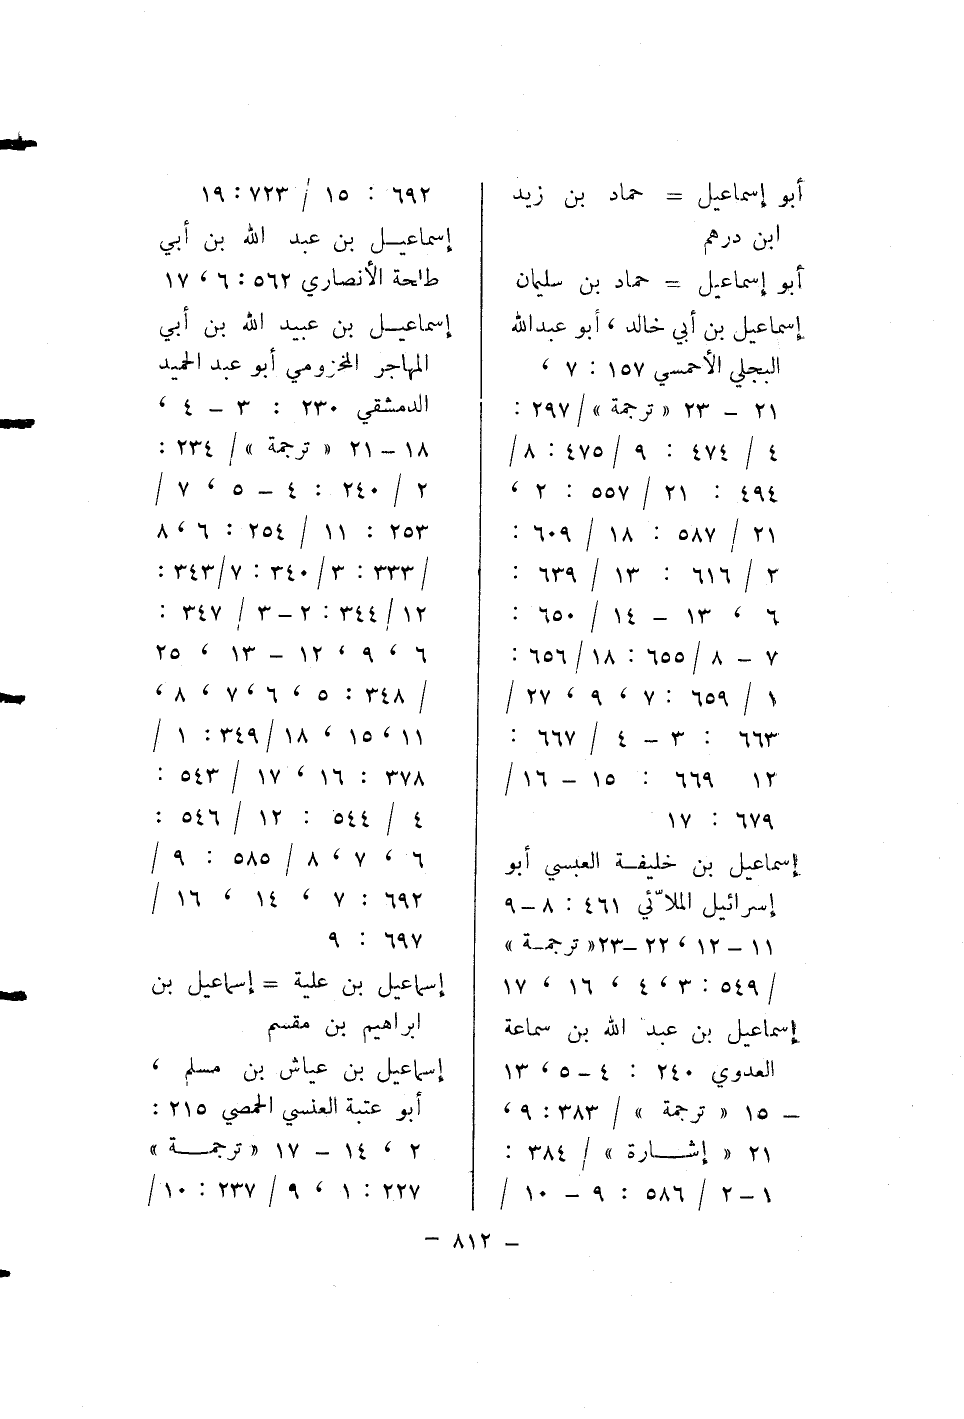 أبو إسماعيل = حماد بن زيد
ابن درهم
أبو إسماعيل = حماد بن سليمان
إسماعيل بن أبي خالد ، أبو عبدالله
البجلي الأحمسي ١٥٧ : ٧ ،
٢١ – ٢٣ « ترجمة »/ ٢٩٧ :
٤ / ٤٧٤ : ٩ / ٤٧٥ : ٨/
٤٩٤ : ٢١ / ٥٥٧ : ٢ ،
٢١ / ٥٨٧ : ١٨ / ٦٠٩ :
٢ / ٦١٦ : ١٣ / ٦٣٩ :
٦ ، ١٣ – ١٤ / ٦٥٠ :
٧ – ٨ / ٦٥٥ : ١٨ / ٦٥٦ :
١ / ٦٥٩ : ٧ ، ٩ ، ٢٧ /
٦٦٣ : ٣ – ٤ / ٦٦٧ :
١٢ ٦٦٩ : ١٥ – ١٦/
٦٧٩ : ١٧
إسماعيل بن خليفة العبسي أبو
إسرائيل الملائي ٤٦١ : ٨ – ٩
١١ – ١٢ ، ٢٢ – ٢٣ « ترجمة »
/ ٥٤٩ : ٣ ، ٤ ، ١٦ ، ١٧
إسماعيل بن عبد الله بن سماعة
العدوي ٢٤٠ : ٤ – ٥ ، ١٣
– ١٥ « ترجمة » / ٣٨٣ : ٩ ،
٢١ « إشارة » / ٣٨٤ :
١ – ٢ / ٥٨٦ : ٩ – ١٠ /
٦٩٢ : ١٥ / ٧٢٣ : ١٩
إسماعيل بن عبد الله بن أبي
طلحة الأنصاري ٥٦٢ : ٦ ، ١٧
إسماعيل بن عبيد الله بن أبي
المهاجر المخزومي أبو عبد الحميد
الدمشقي ٢٣٠ : ٣ – ٤ ،
١٨ – ٢١ « ترجمة »/ ٢٣٤ :
٢ / ٢٤٠ : ٤ – ٥ ، ٧ /
٢٥٣ : ١١ / ٢٥٤ : ٦ ، ٨
/ ٣٣٣ : ٣ / ٣٤٠ : ٧ / ٣٤٣ :
١٢ / ٣٤٤ : ٢ – ٣ / ٣٤٧ :
٦ ، ٩ ، ١٢ – ١٣ ، ٢٥
/ ٣٤٨ : ٥ ، ٦ ، ٧ ، ٨ ،
١١ ، ١٥ ، ١٨ / ٣٤٩ : ١ /
٣٧٨ : ١٦ ، ١٧ / ٥٤٣ :
٤ / ٥٤٤ : ١٢ / ٥٤٦ :
٦ ، ٧ ، ٨ / ٥٨٥ : ٩ /
٦٩٢ : ٧ ، ١٤ ، ١٦ /
٦٩٧ : ٩
إسماعيل بن علية = إسماعيل بن
ابراهيم بن مقسم
إسماعيل بن عياش بن مسلم ،
أبو عتبة العنسي الحمصي ٢١٥ :
٢ ، ١٤ – ١٧ « ترجمة »
٢٢٧ : ١ ، ٩ / ٢٣٧ : ١٠ /
– ٨١٢ –